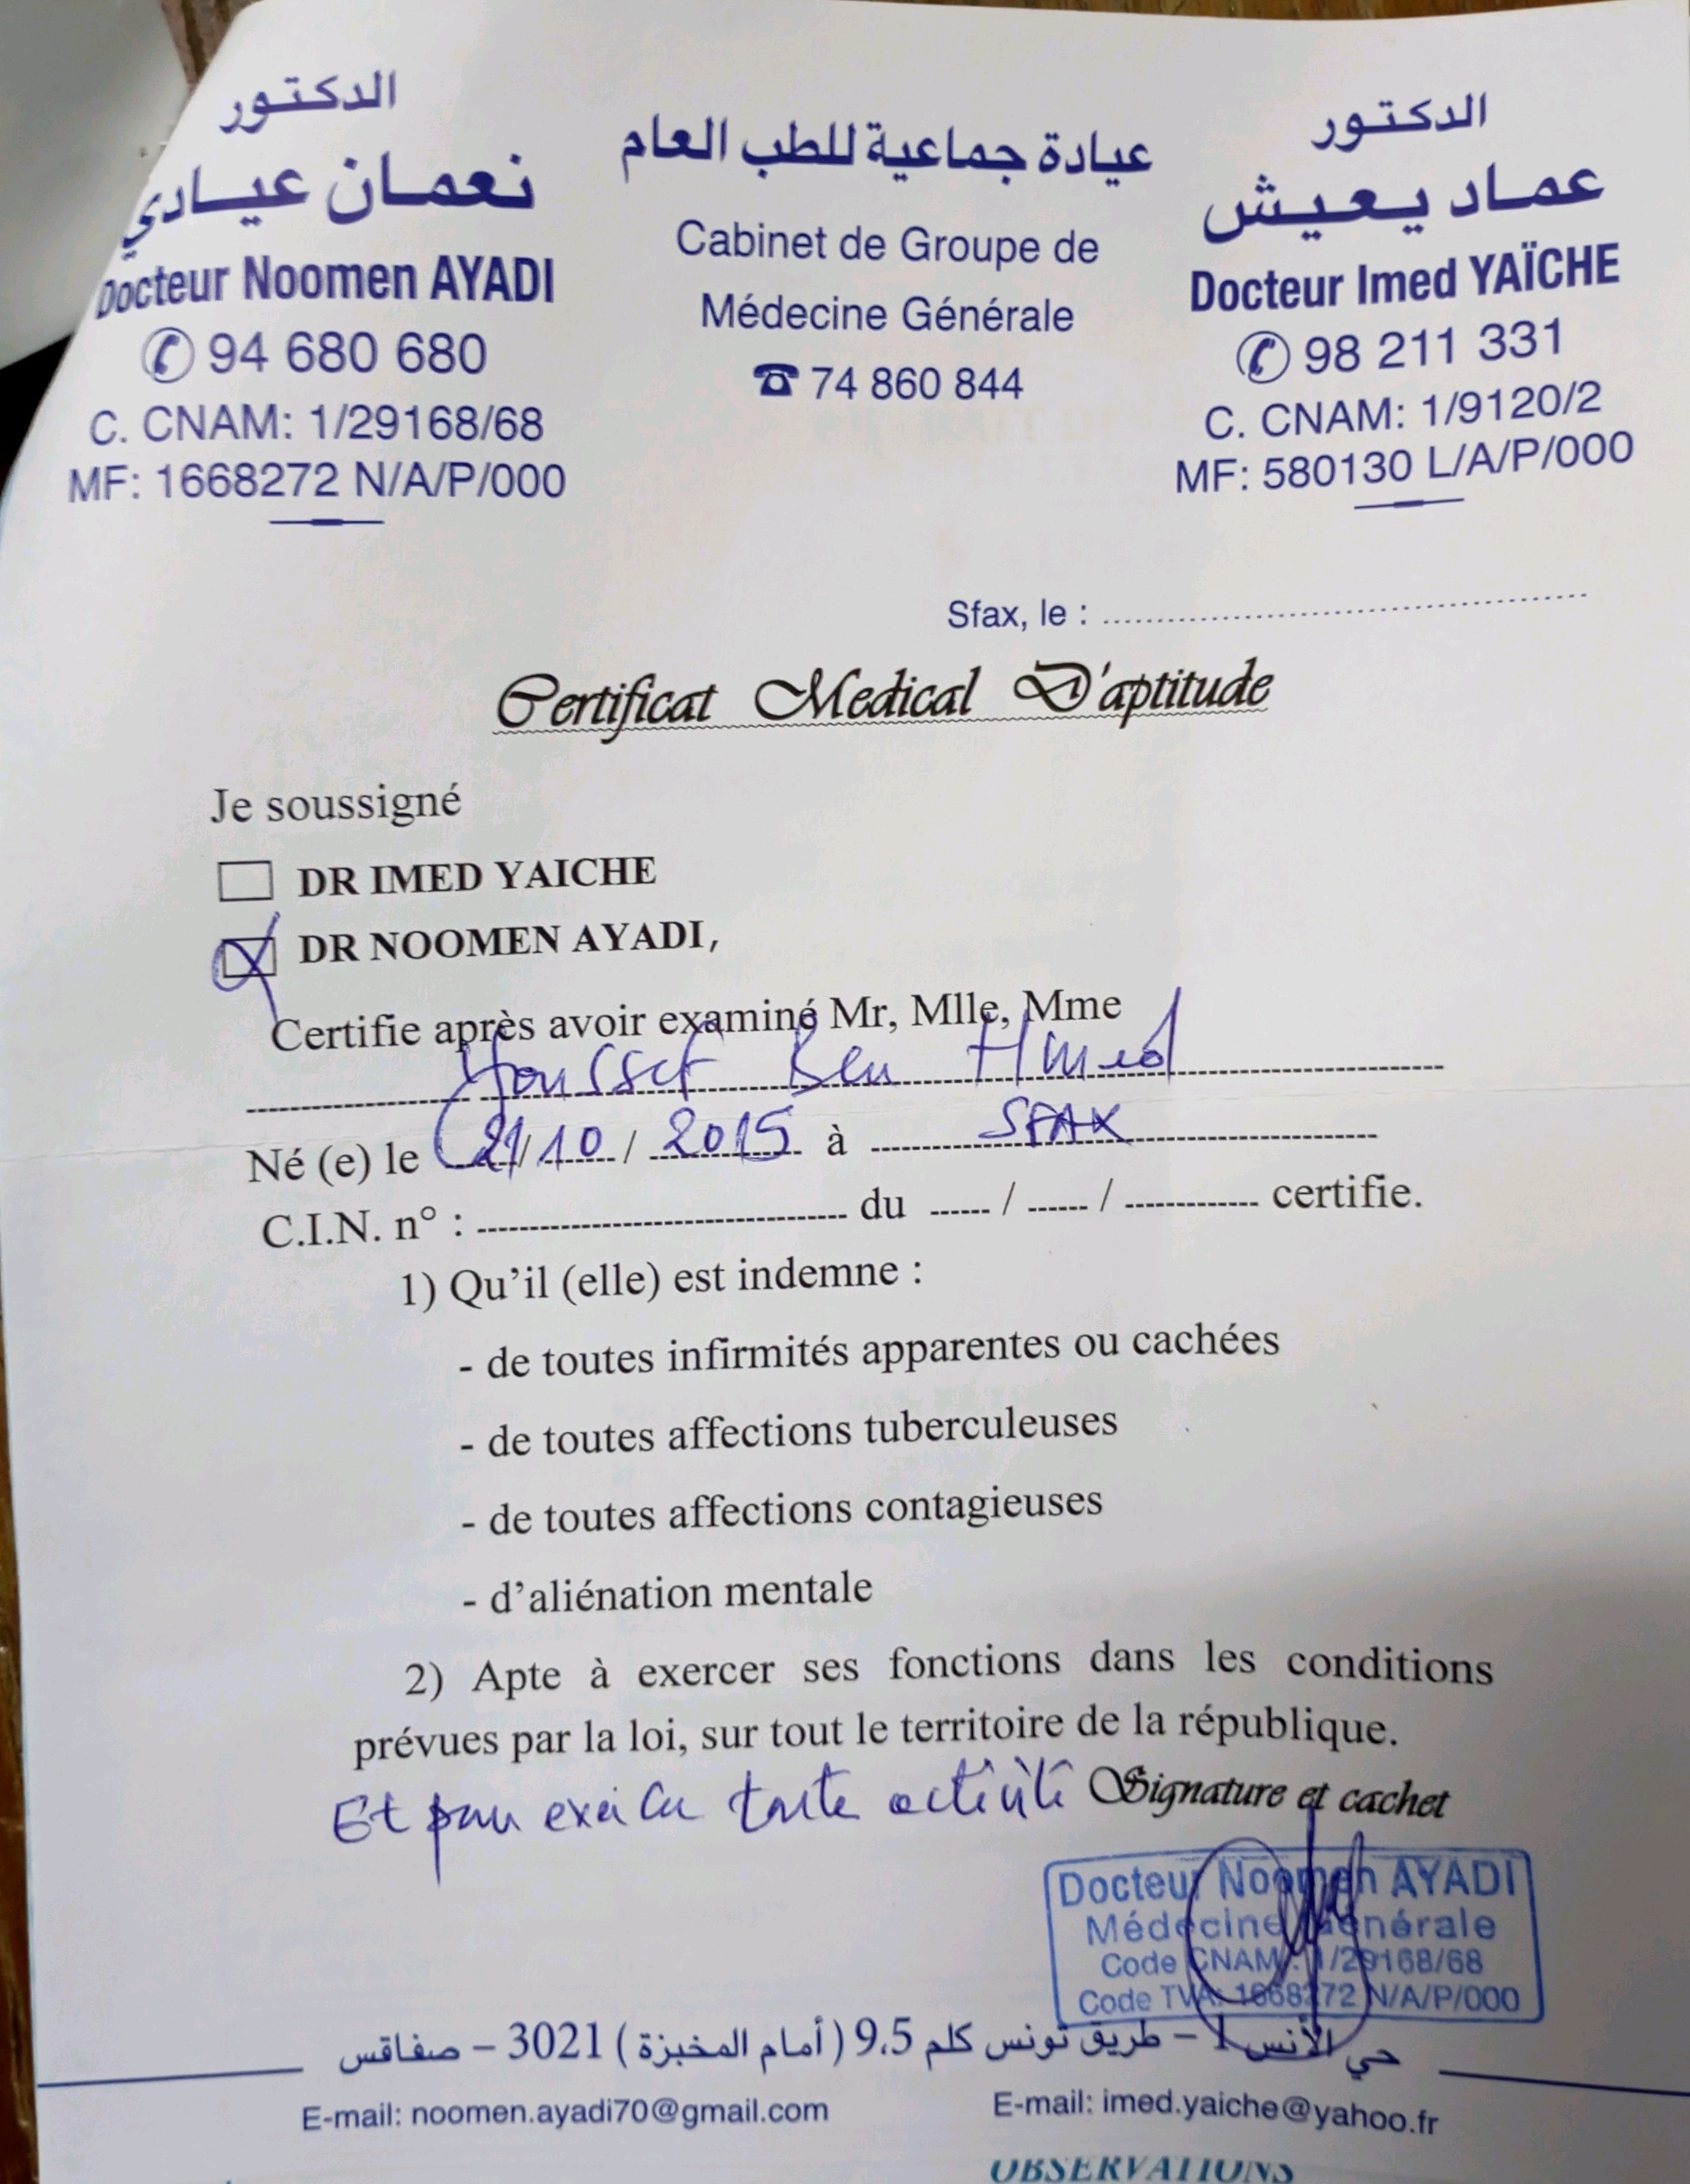 الدكتور
نعمان عيادي
Docteur Noomen AYADI
94 680 680
C. CNAM: 1/29168/68
MF: 1668272 N/A/P/000
عيادة جماعية للطب العام
Cabinet de Groupe de
Médecine Générale
74 860 844
الدكتور
عماد يعيش
Docteur Imed YAÏCHE
98 211 331
C. CNAM: 1/9120/2
MF: 580130 L/A/P/000
Sfax, le :
Certificat Medical D'aptitude
Je soussigné
DR IMED YAICHE
DR NOOMEN AYADI,
Certifie après avoir examiné Mr, Mlle, Mme
Youssef Ben Hmed
Né (e) le 21/10/2015 à SFAX
C.I.N. n° : du / / certifie.
1) Qu'il (elle) est indemne :
- de toutes infirmités apparentes ou cachées
- de toutes affections tuberculeuses
- de toutes affections contagieuses
- d'aliénation mentale
2) Apte à exercer ses fonctions dans les conditions
prévues par la loi, sur tout le territoire de la république.
Et toute activité Signature et cachet
Docteur Noomen AYADI
Médecine Générale
Code CNAM: 1/29168/68
Code TVA: 1668272 N/A/P/000
حي الأنس 1 – طريق تونس كلم 9.5 (أمام المخبزة) 3021 – صفاقس
E-mail: noomen.ayadi70@gmail.com
E-mail: imed.yaiche@yahoo.fr
OBSERVATIONS